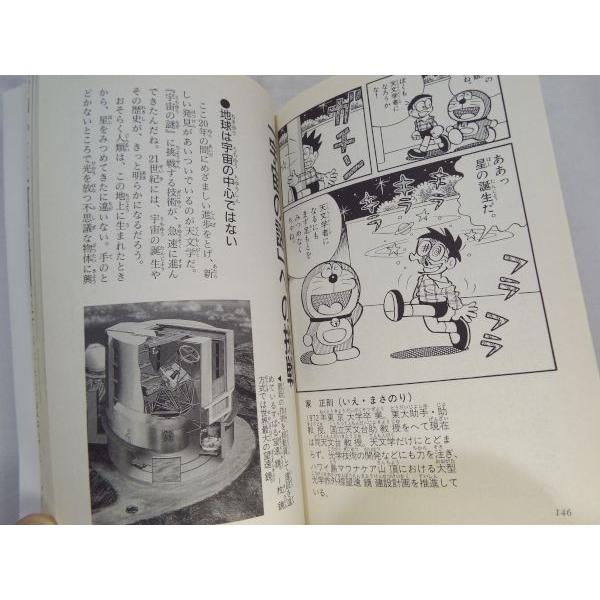 ぼくも
天文学者に
なろうか
な。
ね。
ガチーン
ああっ
星の誕生だ。
キラ
キラ
キラ
フラフラ
天文学者に
なるにも
まず足もとを
みつめなく
ちゃね。
家 正則（いえ・まさのり）
1972年東京大学卒業、東大助手・助
教授、国立天文台助教授をへて現在
は同天文台教授。天文学だけにとどま
らず、光学技術の開発などにも力を注ぎ、
ハワイ島マウナケア山頂における大型
光学赤外線望遠鏡建設計画を推進して
いる。
146
●地球は宇宙の中心ではない
ここ20年の間にめざましい進歩をとげ、新
しい発見があいついでいるのが天文学だ。
『宇宙の謎』に挑戦する技術が、急速に進ん
できたんだね。21世紀には、宇宙の誕生や
その歴史が、きっと明らかになるだろう。
おそらく人類は、この地上に生まれたとき
から、星をみつめてきたに違いない。手のと
どかないところで光を放つ不思議な物体に興
めているすばる望遠鏡。
方式では世界最大の望遠鏡